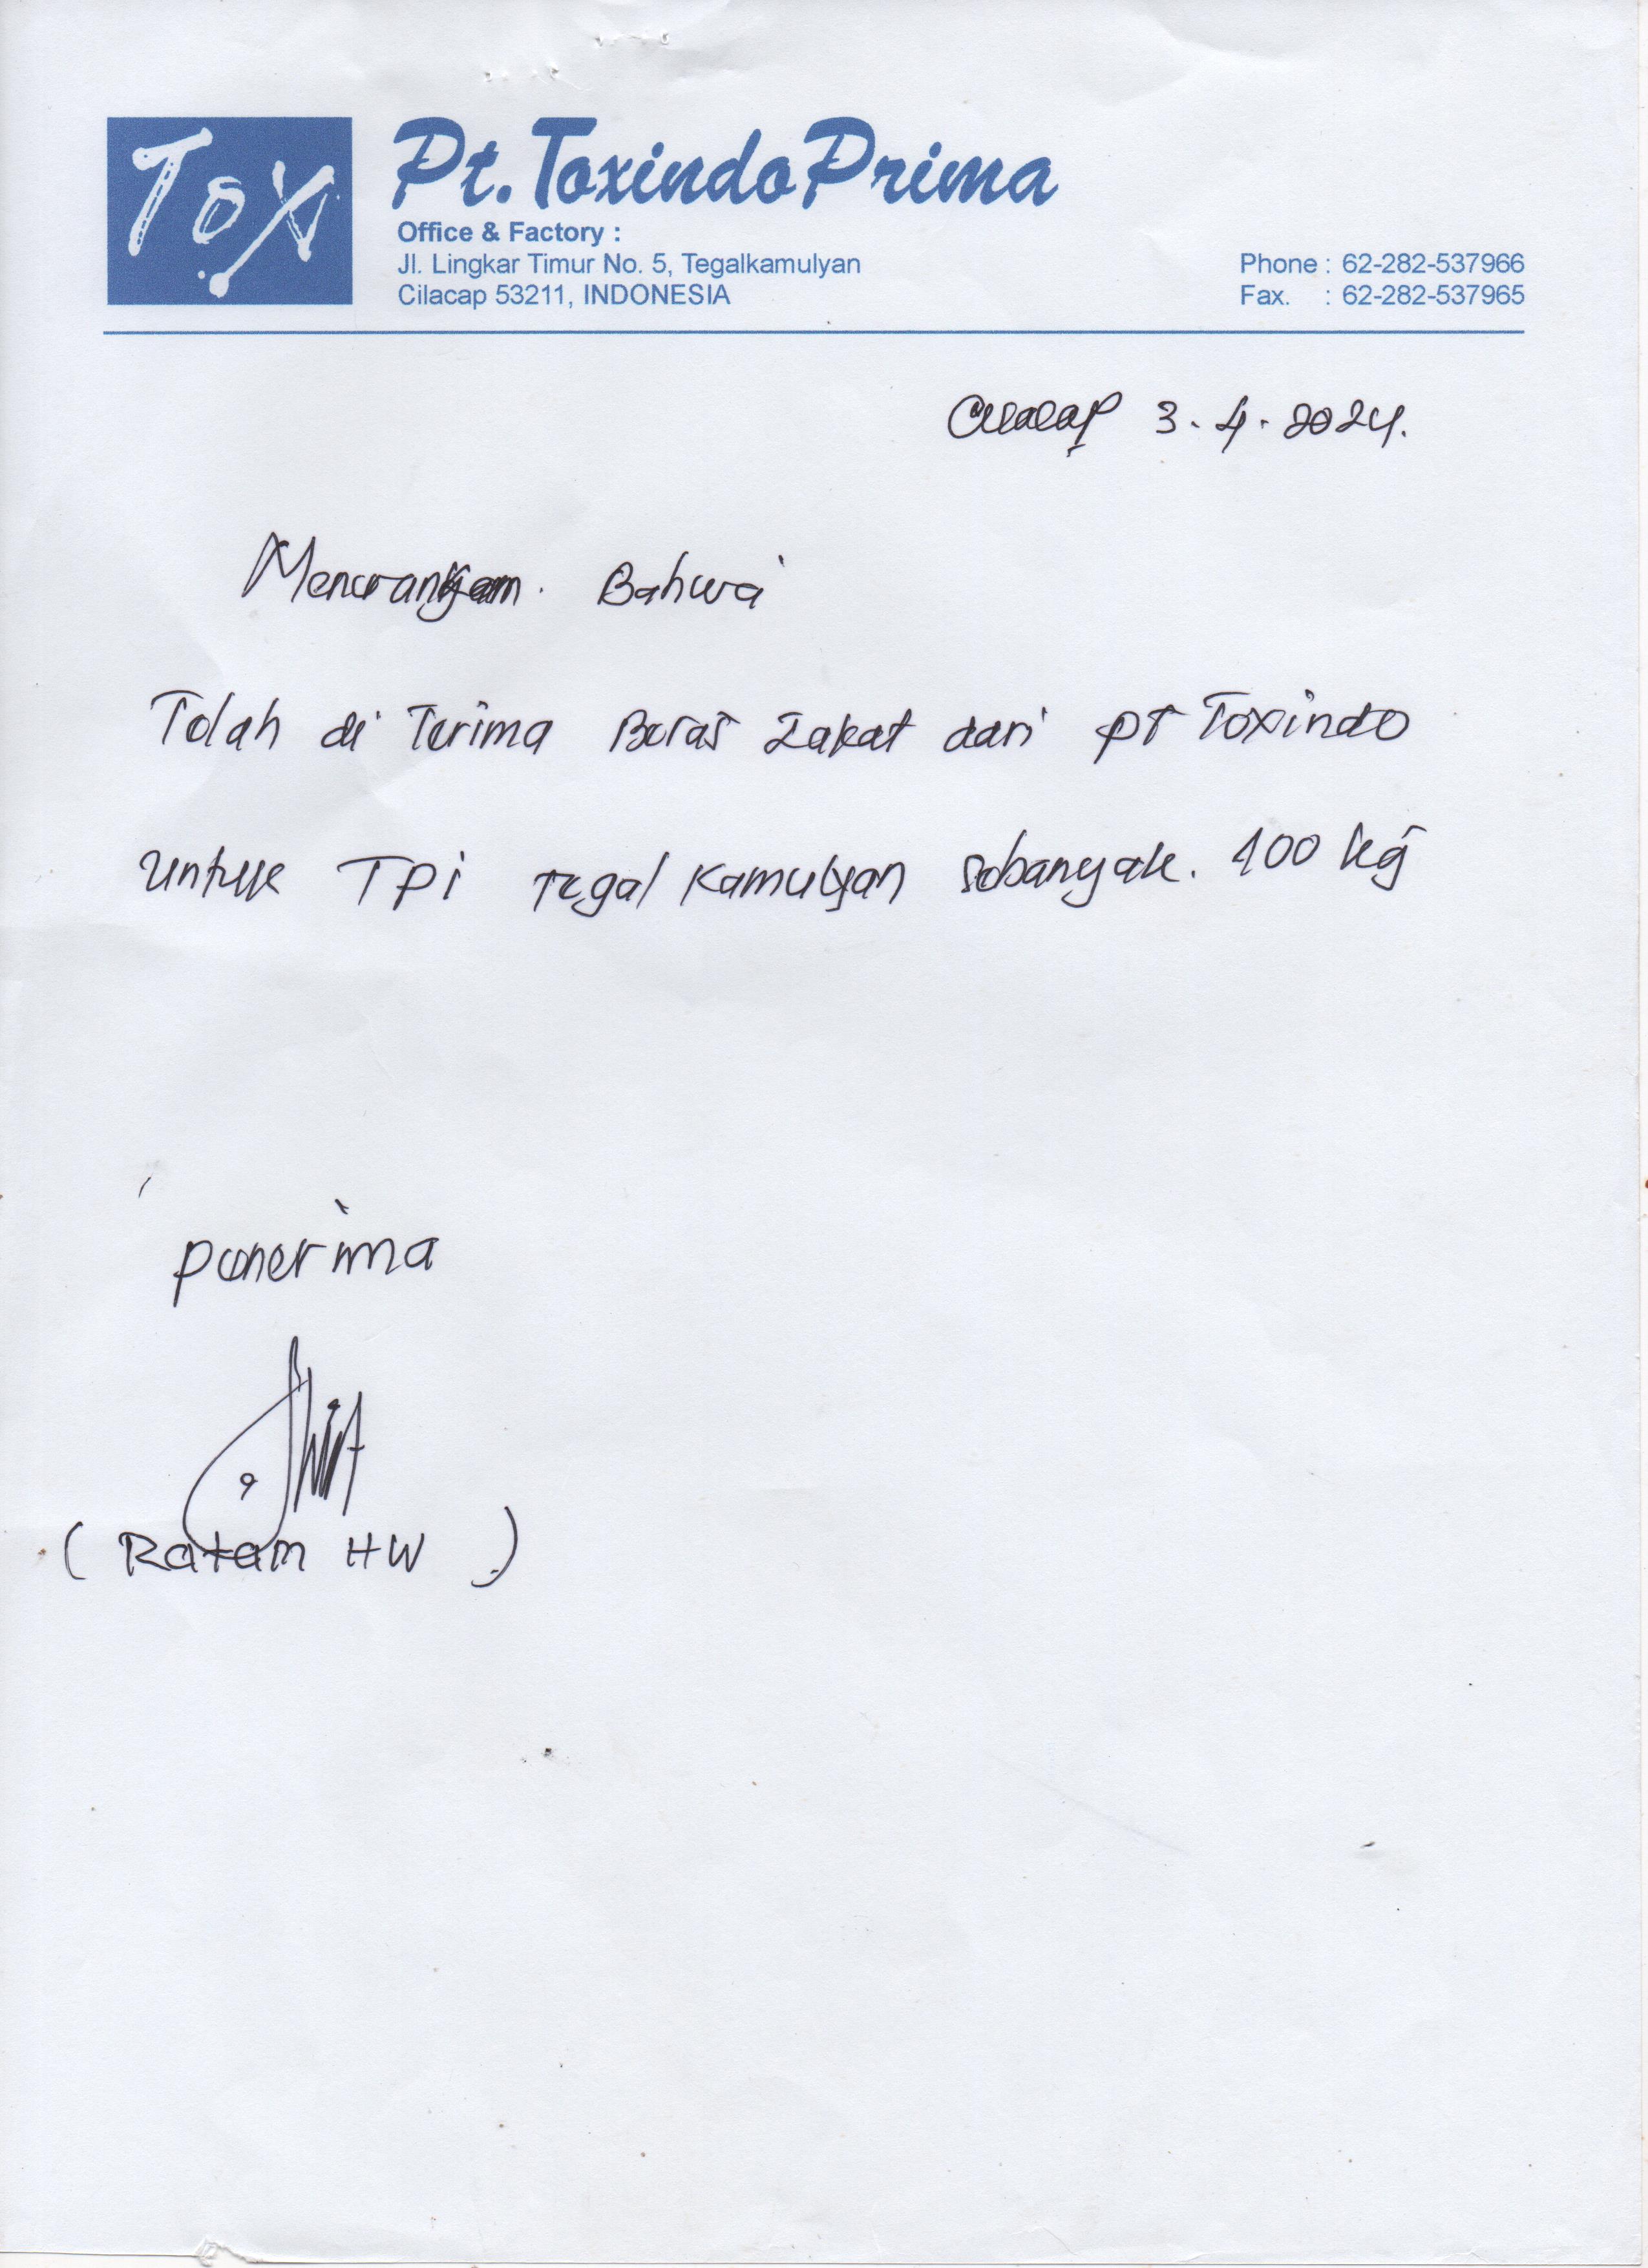 Tox
Pt. Toxindo Prima
Office & Factory :
Jl. Lingkar Timur No. 5, Tegalkamulyan
Cilacap 53211, INDONESIA
Phone : 62-282-537966
Fax. : 62-282-537965
Cilacap 3.4.2024.
Menerangkan. Bahwa
Telah di Terima Beras Zakat dari PT Toxindo
Untuk TPi Tegal Kamulyan Sebanyak. 100 kg
penerima
(Ratam HW)